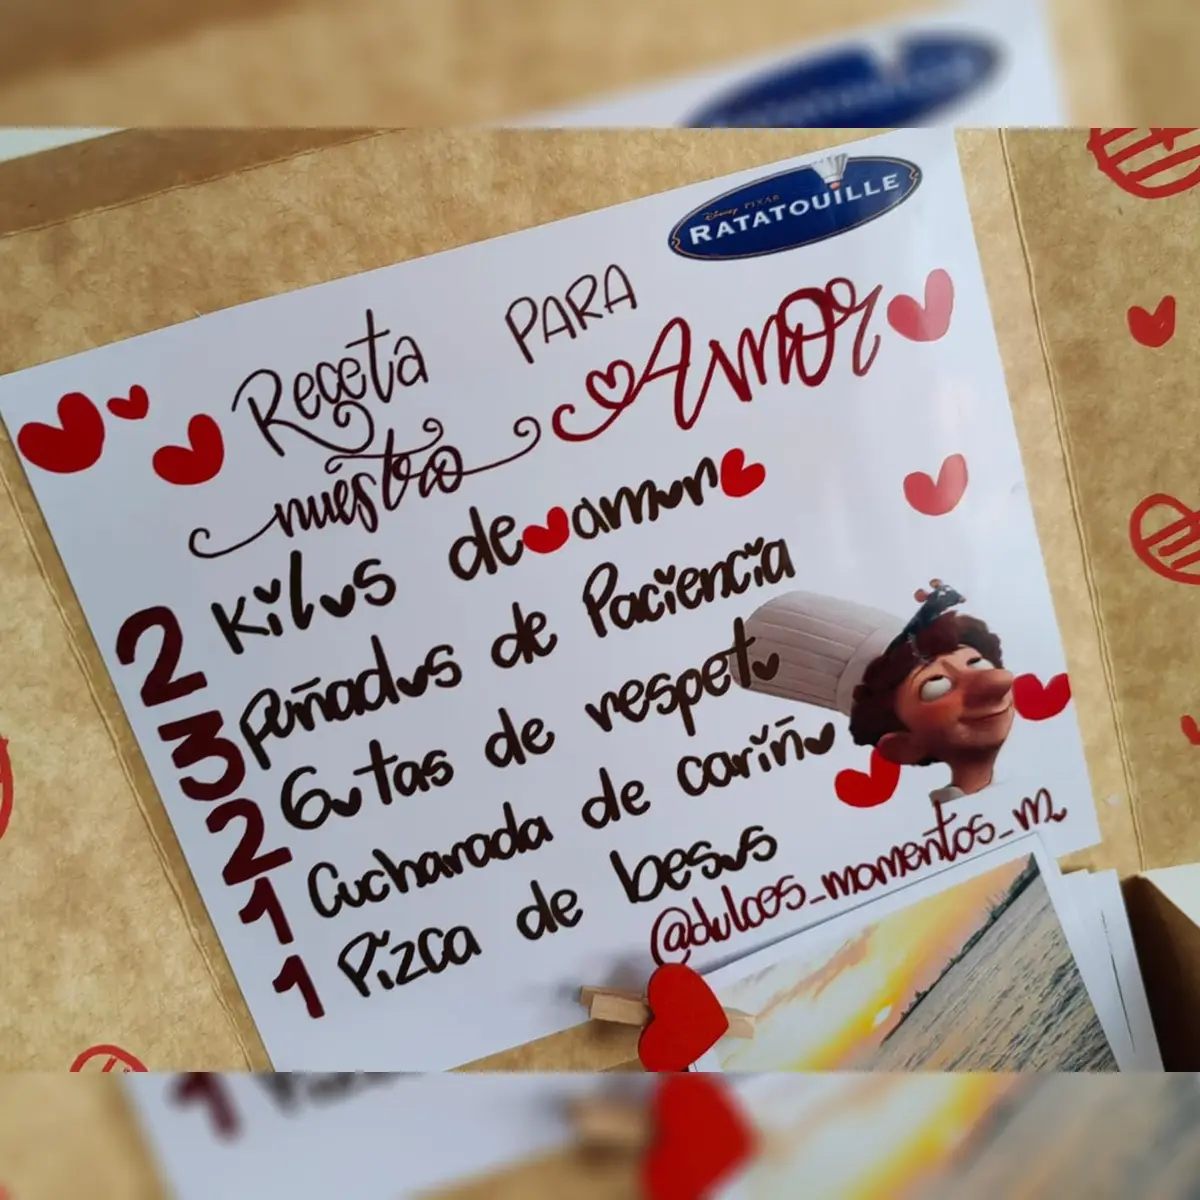 Disney PIXAR
RATATOUILLE
Receta PARA
nuestro Amor
2 Kilos de amor
3 Puñados de Paciencia
2 Gotas de respeto
1 Cucharada de cariño
1 Pizca de besos
@dulces_momentos_m